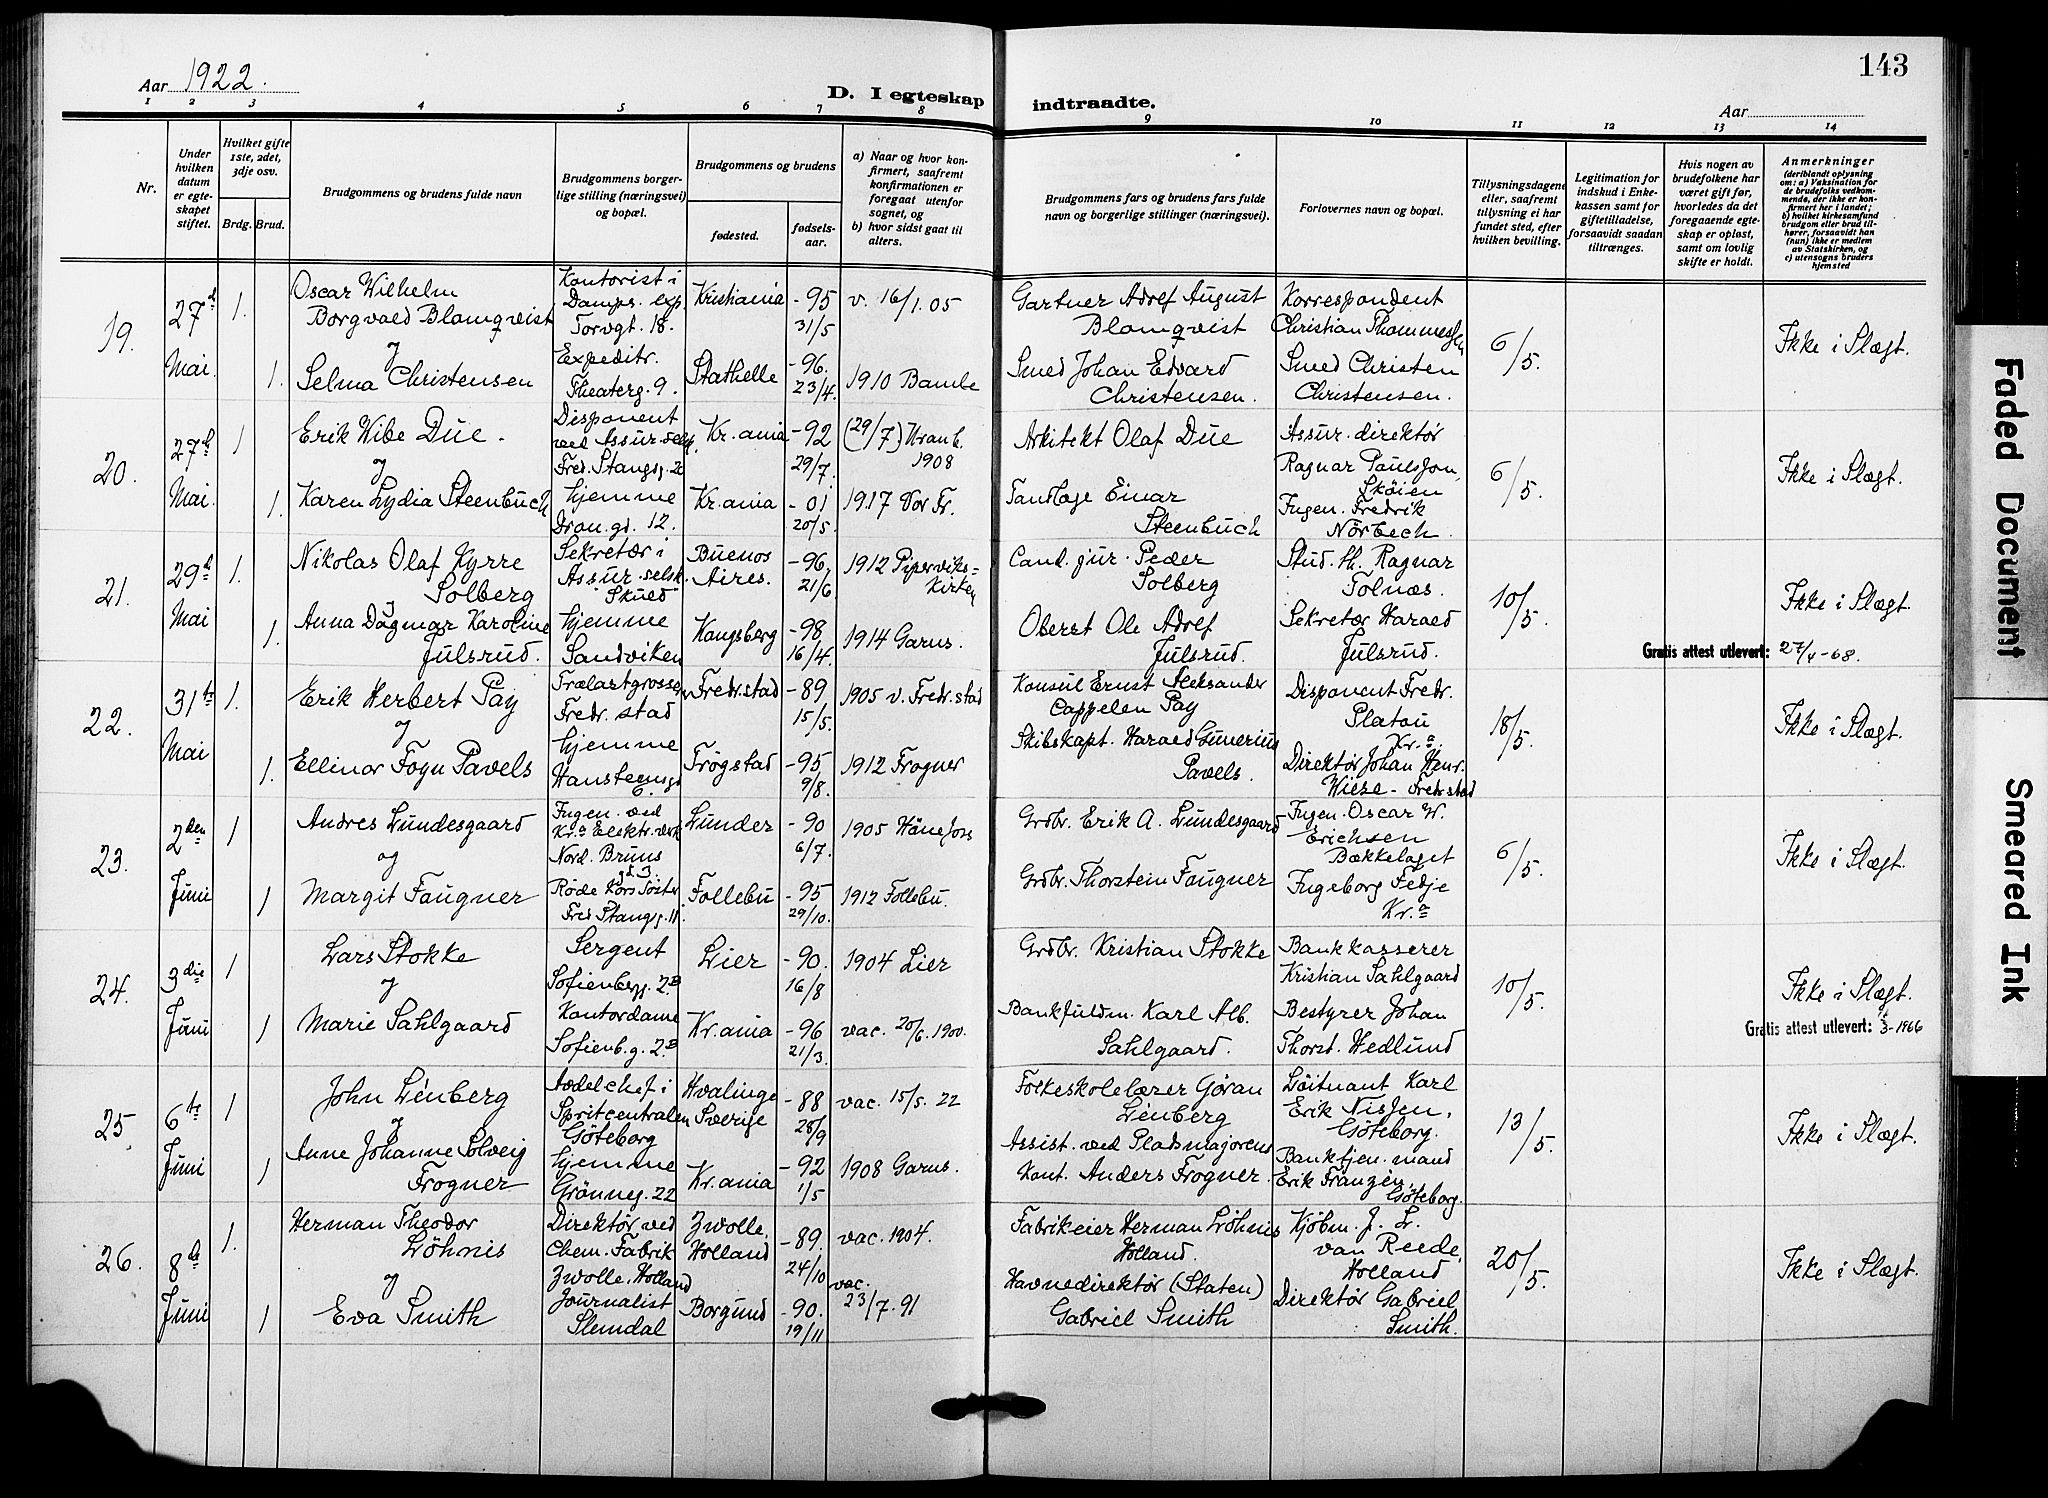 143
Aar 1922.
D. I egteskap indtraadte.
Aar
1 2 3 4 5 6 7 8 9 10 11 12 13 14
Nr.
Under hvilken datum er egteskapet stiftet.
Hvilket gifte 1ste, 2det, 3dje osv.
Brdg. Brud.
Brudgommens og brudens fulde navn
Brudgommens borgerlige stilling (næringsvei) og bopæl.
Brudgommens og brudens
fødested.
fødselsaar.
a) Naar og hvor konfirmert, saafremt konfirmationen er foregaat utenfor sognet, og
b) hvor sidst gaat til alters.
Brudgommens fars og brudens fars fulde navn og borgerlige stillinger (næringsvei).
Forlovernes navn og bopæl.
Tillysningsdagene eller, saafremt tillysning ei har fundet sted, efter hvilken bevilling.
Legitimation for indskud i Enkekassen samt for giftetilladelse, forsaavidt saadan tiltrænges.
Hvis nogen av brudefolkene har været gift før, hvorledes da det foregaaende egteskap er opløst, samt om lovlig skifte er holdt.
Anmerkninger (deriblandt oplysning om: a) Vaksination for de brudefolks vedkommende, der ikke er konfirmert her i landet; b) hvilket kirkesamfund brudgom eller brud tilhører, forsaavidt han (hun) ikke er medlem av Statskirken, og c) utensogns bruders hjemsted
19. 27d Mai. 1.
Oscar Wilhelm
Borgvald Blomqvist
Kontorist i
Damps. exp.
Torvgt. 18.
Kristiania
-95
31/5
v. 16/1. 05
Gartner Adolf August
Blomqvist
Korrespondent
Christian Thommessen
6/5.
Ikke i Slægt.
og
1. Selma Christensen
Expeditr.
Theaterg. 9.
Stathelle
-96.
23/4.
1910 Bamle
Smed Johan Edvard
Christensen.
Smed Christen
Christensen.
20. 27d Mai. 1
Erik Wibe Due.
Disponent
ved Assur. selsk.
Fred. Stangsg. 20
Kr.ania
-92
29/7.
(29/7) Uranb.
1908
Arkitekt Olaf Due
Assur. direktör
Ragnar Paulsson,
Sköien
6/5.
Ikke i Slægt.
og
1. Karen Lydia Steenbuch
hjemme
Dron.gt. 12.
Kr.ania
-01
20/5.
1917 Vor Fr.
Tandlæge Einar
Steenbuch
Ingen. Fredrik
Nörbech.
21. 29d Mai 1.
Nikolas Olaf Kyrre
Solberg
Sekretær i
Assur. selsk.
Skuld
Buenos
Aires.
-96.
21/6.
1912 Piperviks=
Kirken
Cand. jur. Peder
Solberg
Stud. th. Ragnar
Tolnæs.
10/5.
Ikke i Slægt.
og
1. Anna Dagmar Karoline
Julsrud.
hjemme
Sandviken
Kongsberg
-98
16/4.
1914 Garns.
Oberst Ole Adolf
Julsrud.
Sekretær Harald
Julsrud.
Gratis attest utlevert: 27/4-68.
22. 31te Mai 1.
Erik Herbert Pay
Trælastgrosserer
Fredr.stad
Fredr.stad
-89
15/5.
1905 v. Fredr.stad
Konsul Ernst Aleksander
Cappelen Pay
Disponent Fredr.
Platou
Kr.a
18/5.
Ikke i Slægt.
og
1. Ellinor Foyn Pavels
hjemme
Hansteensgt.
6.
Trøgstad
-95
9/8.
1912 Frogner
Skibskapt. Harald Gunerius
Pavels.
Direktör Johan Henr.
Wiese - Fredrstad
23. 2den Juni 1
Andres Lundesgaard
Ingen. ved
Kr.a Elektr.verk
Nord. Bruns
gt. 3.
Lunder
-90
6/7.
1905 Hönefoss
Grdbr. Erik A. Lundesgaard
Ingen. Oscar W.
Erichsen
Bækkelaget
6/5.
Ikke i Slægt.
og
1 Margit Faugner
Röde Kors Söster
Fred Stangsg. 11.
Follebu
-95
29/10.
1912 Follebu.
Grdbr. Thorstein Faugner
Ingeborg Fedje
Kr.a
24. 3die Juni 1
Lars Stokke
Sergent
Sofienbergg. 2.B
Lier
-90.
16/8
1904 Lier
Grdbr. Kristian Stokke
Bankkasserer
Kristian Sahlgaard
10/5.
Ikke i Slægt.
Gratis attest utlevert: 3-1966
og
1 Marie Sahlgaard
Kontordame
Sofienb.g. 2.B
Kr.ania
-96
21/3.
vac. 20/6. 1900.
Bankfuldm. Karl Alb.
Sahlgaard.
Bestyrer Johan
Thorst. Hedlund
25. 6te Juni 1
John Lénberg
Avdelchef i
Spritcentralen
Göteborg
Hvalinge
Sverige
-88
28/9
vac. 15/5. 22
Folkeskolelærer Göran
Lénberg
Löitnant Karl
Erik Nissen,
Göteborg.
13/5.
Ikke i Slægt.
og
1 Anne Johanne Solveig
Frogner
hjemme
Grönneg. 22
Kr.ania
-92
1/5
1908 Garns.
Assist. ved Pladsmajorens
Kont. Anders Frogner.
Banktjen.mand
Erik Franzén,
Göteborg.
26. 8de Juni 1.
Herman Theodor
Löhnis
Direktör ved
Chem. Fabrik
Zwolle. Holland
Zwolle.
Holland
-89.
24/10
vac. 1904.
Fabrikeier Herman Löhnis
Holland.
Kjöbm. J. L.
van Reede,
Holland
20/5.
Ikke i Slægt.
og
1 Eva Smith
Journalist
Slemdal
Borgund
-90.
19/11
vac.
23/7. 91
Havnedirektör (Staten)
Gabriel Smith
Direktör Gabriel
Smith.
Faded Document
Smeared Ink